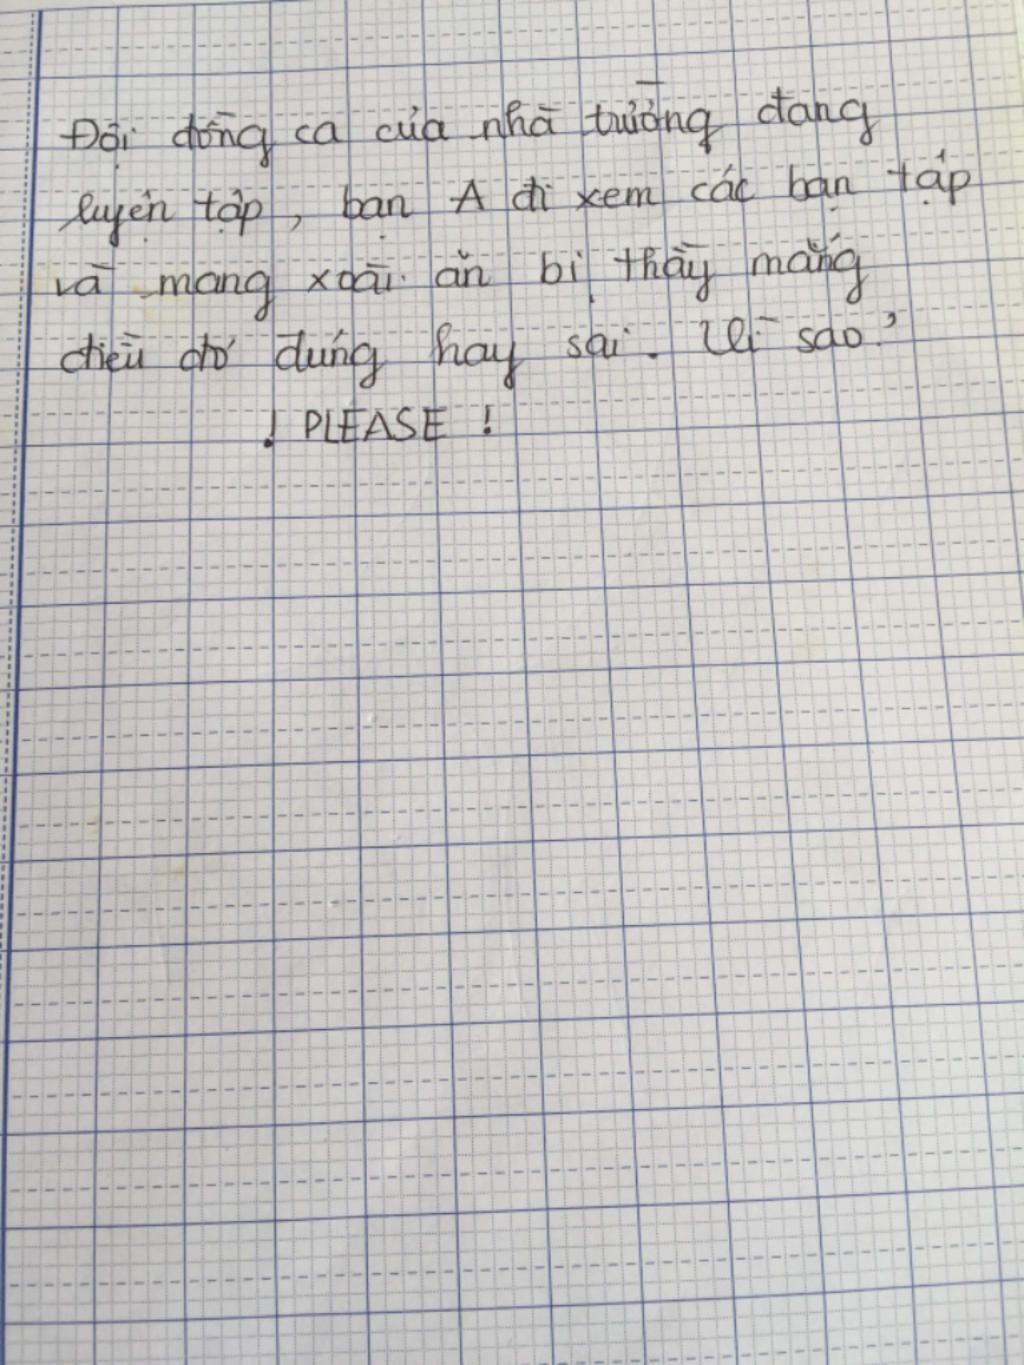 Đội đồng ca của nhà trường đang
luyện tập, bạn A đi xem các bạn tập
và mang xoài ăn bị thầy mắng
điều đó đúng hay sai. Vì sao?
! PLEASE !